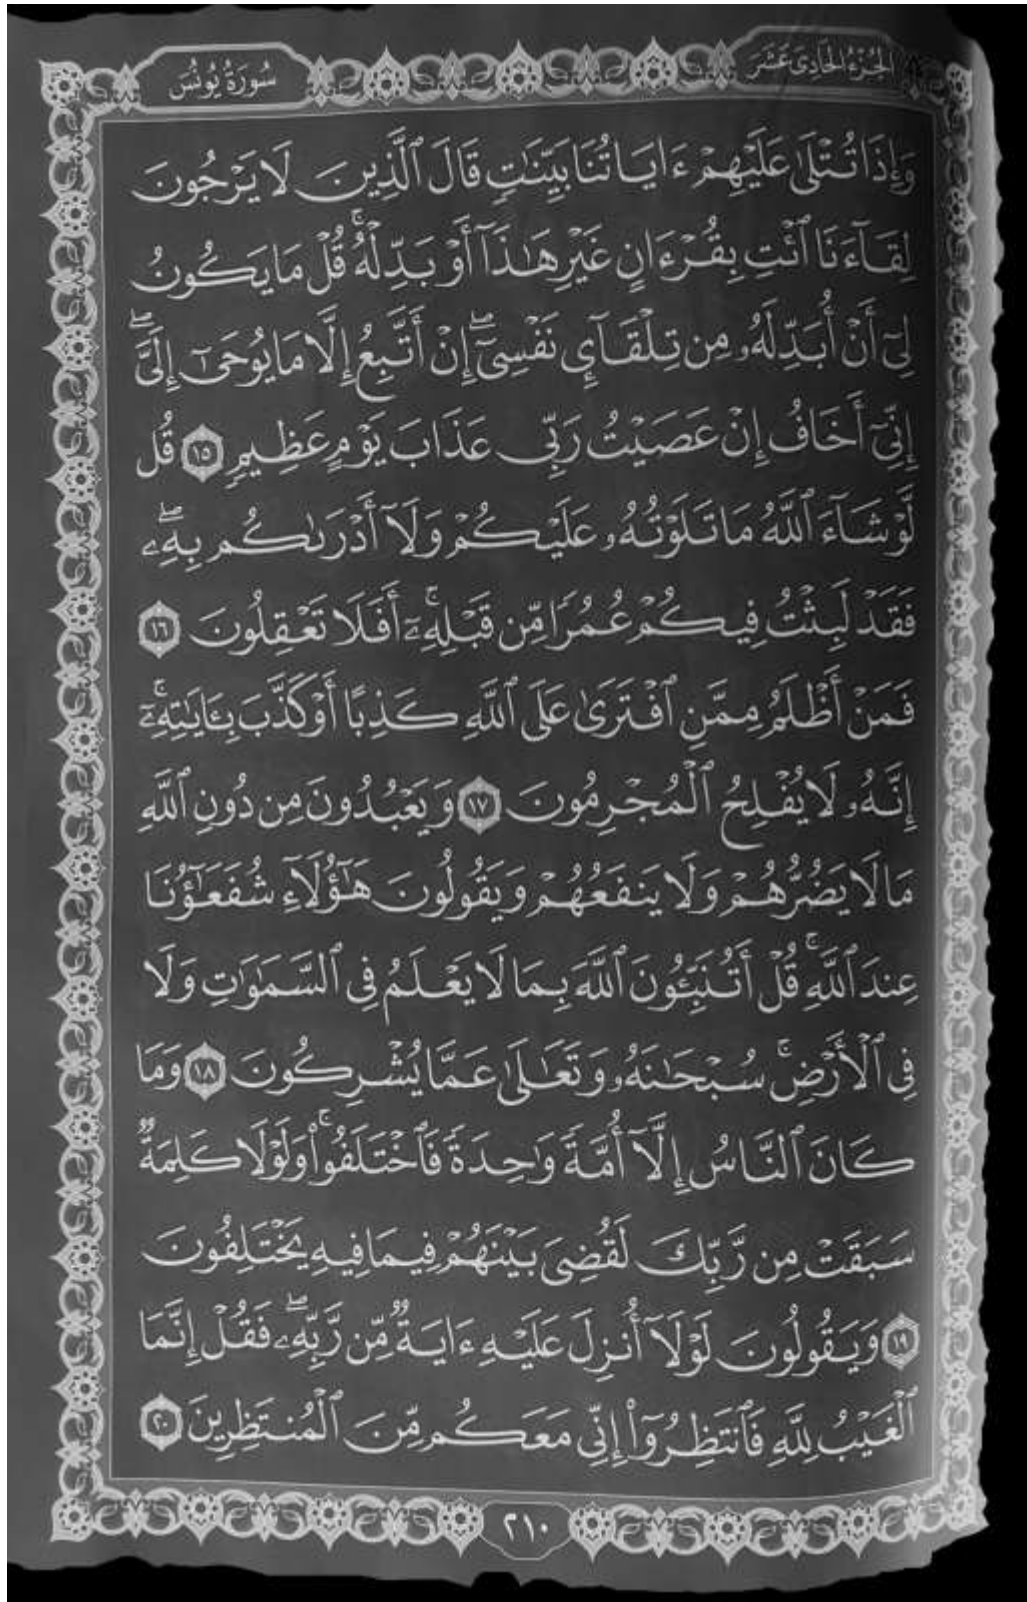 الجُزْءُ الحَادِى عَشَرَ
سُورَةُ يُونُسَ
وَإِذَا تُتْلَىٰ عَلَيْهِمْ ءَايَاتُنَا بَيِّنَٰتٍ قَالَ ٱلَّذِينَ لَا يَرْجُونَ
لِقَآءَنَا ٱئْتِ بِقُرْءَانٍ غَيْرِ هَٰذَآ أَوْ بَدِّلْهُ ۚ قُلْ مَا يَكُونُ
لِىٓ أَنْ أُبَدِّلَهُۥ مِن تِلْقَآئِ نَفْسِىٓ ۖ إِنْ أَتَّبِعُ إِلَّا مَا يُوحَىٰٓ إِلَىَّ ۖ
إِنِّىٓ أَخَافُ إِنْ عَصَيْتُ رَبِّى عَذَابَ يَوْمٍ عَظِيمٍ ١٥ قُل
لَّوْ شَآءَ ٱللَّهُ مَا تَلَوْتُهُۥ عَلَيْكُمْ وَلَآ أَدْرَىٰكُم بِهِۦ ۖ
فَقَدْ لَبِثْتُ فِيكُمْ عُمُرًا مِّن قَبْلِهِۦٓ ۚ أَفَلَا تَعْقِلُونَ ١٦
فَمَنْ أَظْلَمُ مِمَّنِ ٱفْتَرَىٰ عَلَى ٱللَّهِ كَذِبًا أَوْ كَذَّبَ بِـَٔايَٰتِهِۦٓ ۚ
إِنَّهُۥ لَا يُفْلِحُ ٱلْمُجْرِمُونَ ١٧ وَيَعْبُدُونَ مِن دُونِ ٱللَّهِ
مَا لَا يَضُرُّهُمْ وَلَا يَنفَعُهُمْ وَيَقُولُونَ هَٰٓؤُلَآءِ شُفَعَٰٓؤُنَا
عِندَ ٱللَّهِ ۚ قُلْ أَتُنَبِّـُٔونَ ٱللَّهَ بِمَا لَا يَعْلَمُ فِى ٱلسَّمَٰوَٰتِ وَلَا
فِى ٱلْأَرْضِ ۚ سُبْحَٰنَهُۥ وَتَعَٰلَىٰ عَمَّا يُشْرِكُونَ ١٨ وَمَا
كَانَ ٱلنَّاسُ إِلَّآ أُمَّةً وَٰحِدَةً فَٱخْتَلَفُوا۟ ۚ وَلَوْلَا كَلِمَةٌ
سَبَقَتْ مِن رَّبِّكَ لَقُضِىَ بَيْنَهُمْ فِيمَا فِيهِ يَخْتَلِفُونَ
١٩ وَيَقُولُونَ لَوْلَآ أُنزِلَ عَلَيْهِ ءَايَةٌ مِّن رَّبِّهِۦ ۖ فَقُلْ إِنَّمَا
ٱلْغَيْبُ لِلَّهِ فَٱنتَظِرُوٓا۟ إِنِّى مَعَكُم مِّنَ ٱلْمُنتَظِرِينَ ٢٠
٢١٠